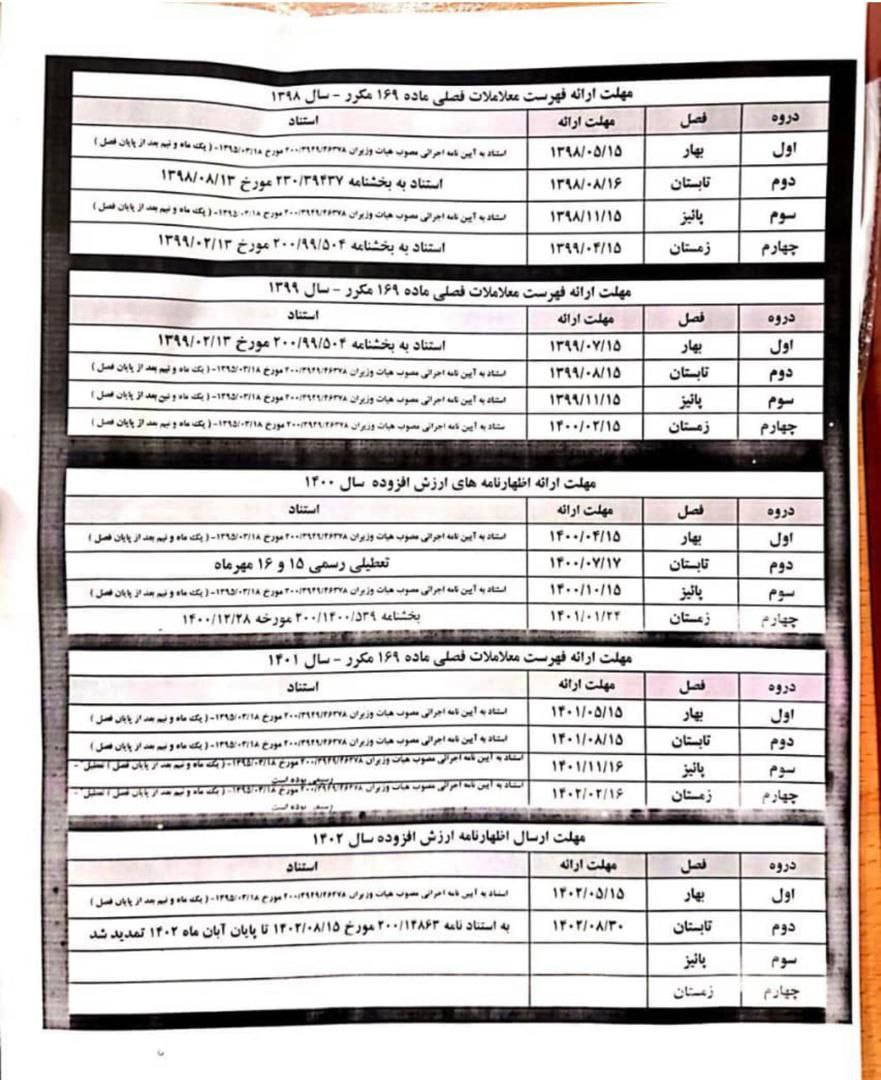 مهلت ارائه فهرست معاملات فصلی ماده ۱۶۹ مکرر - سال ۱۳۹۸
دروه فصل مهلت ارائه استناد
اول بهار ۱۳۹۸/۰۵/۱۵ استناد به آیین نامه اجرائی مصوب هیات وزیران ۲۰۰/۳۹۲۹/۴۶۳۷۸ مورخ ۱۳۹۵/۰۳/۱۸- ( یک ماه و نیم بعد از پایان فصل )
دوم تابستان ۱۳۹۸/۰۸/۱۶ استناد به بخشنامه ۲۳۰/۳۹۴۳۷ مورخ ۱۳۹۸/۰۸/۱۳
سوم پائیز ۱۳۹۸/۱۱/۱۵ استناد به آیین نامه اجرائی مصوب هیات وزیران ۲۰۰/۳۹۲۹/۴۶۳۷۸ مورخ ۱۳۹۵/۰۳/۱۸- ( یک ماه و نیم بعد از پایان فصل )
چهارم زمستان ۱۳۹۹/۰۴/۱۵ استناد به بخشنامه ۲۰۰/۹۹/۵۰۴ مورخ ۱۳۹۹/۰۲/۱۳
مهلت ارائه فهرست معاملات فصلی ماده ۱۶۹ مکرر - سال ۱۳۹۹
دروه فصل مهلت ارائه استناد
اول بهار ۱۳۹۹/۰۷/۱۵ استناد به بخشنامه ۲۰۰/۹۹/۵۰۴ مورخ ۱۳۹۹/۰۲/۱۳
دوم تابستان ۱۳۹۹/۰۸/۱۵ استناد به آیین نامه اجرائی مصوب هیات وزیران ۲۰۰/۳۹۲۹/۴۶۳۷۸ مورخ ۱۳۹۵/۰۳/۱۸- ( یک ماه و نیم بعد از پایان فصل )
سوم پائیز ۱۳۹۹/۱۱/۱۵ استناد به آیین نامه اجرائی مصوب هیات وزیران ۲۰۰/۳۹۲۹/۴۶۳۷۸ مورخ ۱۳۹۵/۰۳/۱۸- ( یک ماه و نین بعد از پایان فصل )
چهارم زمستان ۱۴۰۰/۰۲/۱۵ ستناد به آیین نامه اجرائی مصوب هیات وزیران ۲۰۰/۳۹۲۹/۴۶۳۷۸ مورخ ۱۳۹۵/۰۳/۱۸- ( یک ماه و نیم بعد از پایان فصل )
مهلت ارائه اظهارنامه های ارزش افزوده سال ۱۴۰۰
دروه فصل مهلت ارائه استناد
اول بهار ۱۴۰۰/۰۴/۱۵ استناد به آیین نامه اجرائی مصوب هیات وزیران ۲۰۰/۳۹۲۹/۴۶۳۷۸ مورخ ۱۳۹۵/۰۳/۱۸- ( یک ماه و نیم بعد از پایان فصل )
دوم تابستان ۱۴۰۰/۰۷/۱۷ تعطیلی رسمی ۱۵ و ۱۶ مهرماه
سوم پائیز ۱۴۰۰/۱۰/۱۵ استناد به آیین نامه اجرائی مصوب هیات وزیران ۲۰۰/۳۹۲۹/۴۶۳۷۸ مورخ ۱۳۹۵/۰۳/۱۸- ( یک ماه و نیم بعد از پایان فصل )
چهارم زمستان ۱۴۰۱/۰۱/۲۴ بخشنامه ۲۰۰/۱۴۰۰/۵۳۹ مورخه ۱۴۰۰/۱۲/۲۸
مهلت ارائه فهرست معاملات فصلی ماده ۱۶۹ مکرر - سال ۱۴۰۱
دروه فصل مهلت ارائه استناد
اول بهار ۱۴۰۱/۰۵/۱۵ استناد به آیین نامه اجرائی مصوب هیات وزیران ۲۰۰/۳۹۲۹/۴۶۳۷۸ مورخ ۱۳۹۵/۰۳/۱۸- ( یک ماه و نیم بعد از پایان فصل )
دوم تابستان ۱۴۰۱/۰۸/۱۵ استناد به آیین نامه اجرائی مصوب هیات وزیران ۲۰۰/۳۹۲۹/۴۶۳۷۸ مورخ ۱۳۹۵/۰۳/۱۸- ( یک ماه و نیم بعد از پایان فصل )
سوم پائیز ۱۴۰۱/۱۱/۱۶ استناد به آیین نامه اجرائی مصوب هیات وزیران ۲۰۰/۳۹۲۹/۴۶۳۷۸ مورخ ۱۳۹۵/۰۳/۱۸- ( یک ماه و نیم بعد از پایان فصل ) تعطیل -
رسمی بوده است
چهارم زمستان ۱۴۰۲/۰۲/۱۶ استناد به آیین نامه اجرائی مصوب هیات وزیران ۲۰۰/۳۹۲۹/۴۶۳۷۸ مورخ ۱۳۹۵/۰۳/۱۸- ( یک ماه و نیم بعد از پایان فصل ) تعطیل -
رسمی بوده است
مهلت ارسال اظهارنامه ارزش افزوده سال ۱۴۰۲
دروه فصل مهلت ارائه استناد
اول بهار ۱۴۰۲/۰۵/۱۵ استناد به آیین نامه اجرائی مصوب هیات وزیران ۲۰۰/۳۹۲۹/۴۶۳۷۸ مورخ ۱۳۹۵/۰۳/۱۸- ( یک ماه و نیم بعد از پایان فصل )
دوم تابستان ۱۴۰۲/۰۸/۳۰ به استناد نامه ۲۰۰/۱۴۸۶۳ مورخ ۱۴۰۲/۰۸/۱۵ تا پایان آبان ماه ۱۴۰۲ تمدید شد
سوم پائیز
چهارم زمستان